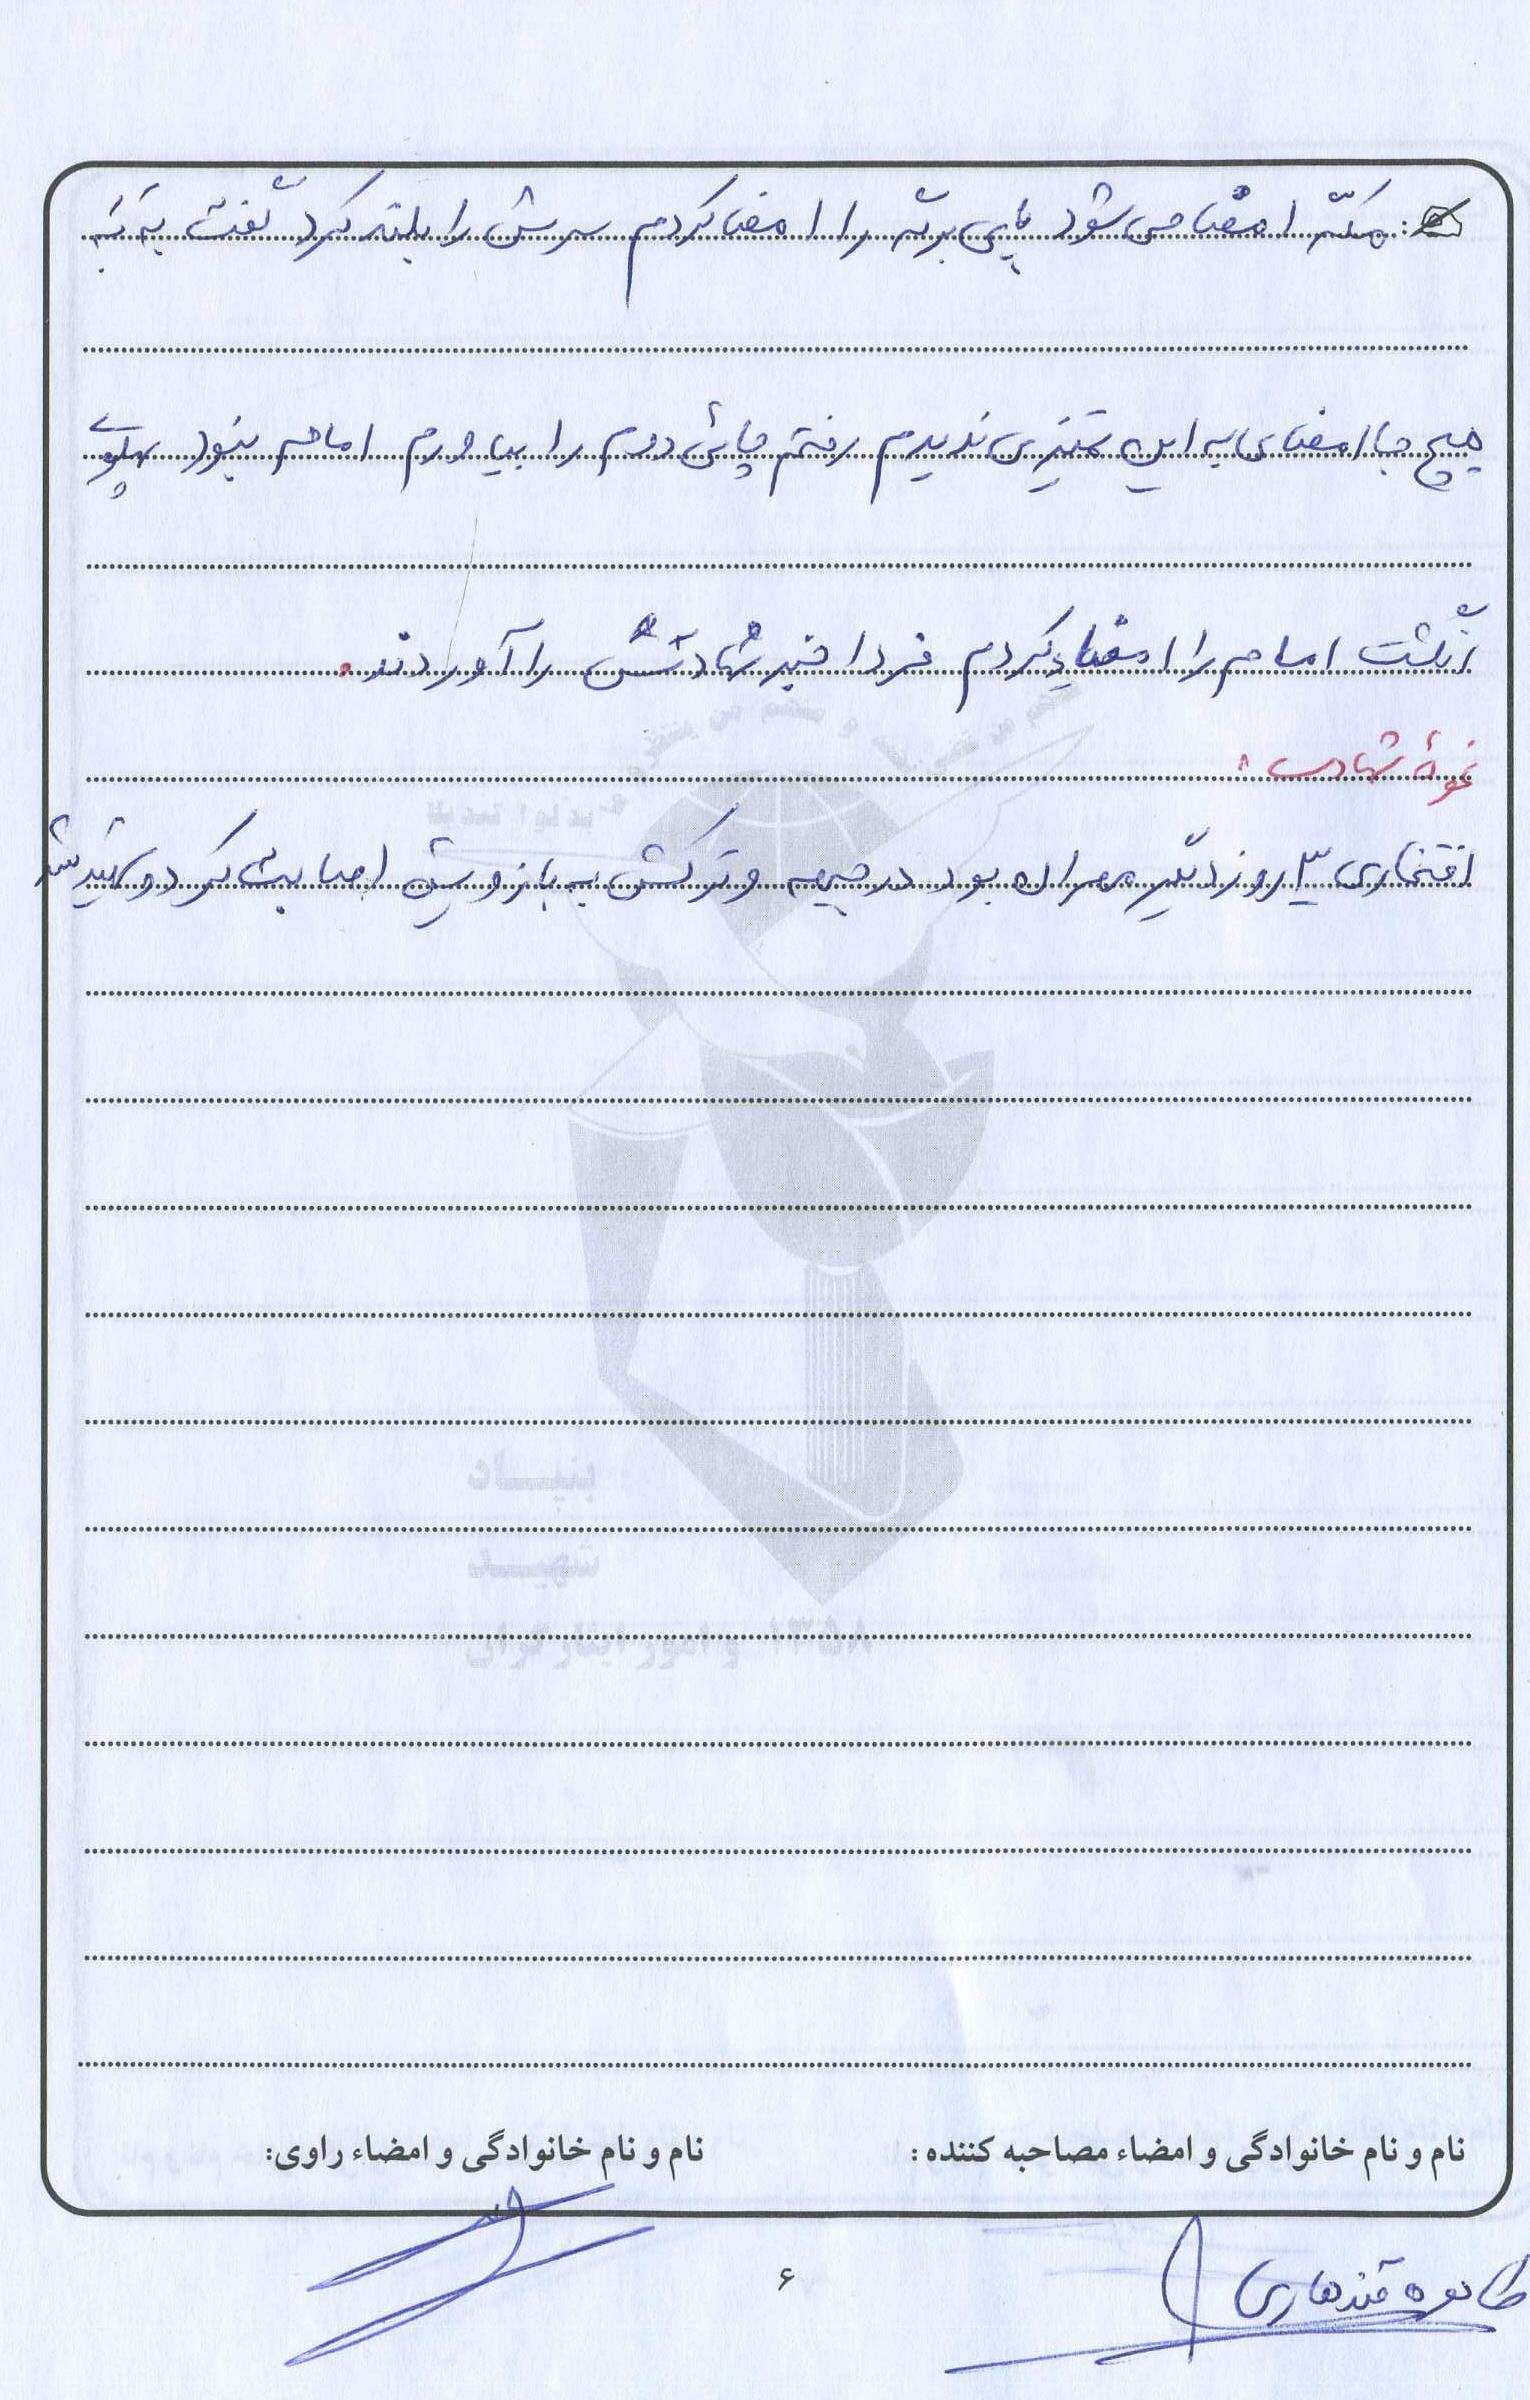 مکّه امضا می شود پای برگه را امضا کردم سرش را بلند کرد گفت به به
هیچ جا امضای به این تمیزی ندیدم رفتم چائی دوم را بیاورم امام نبود پهلوی
انگشت امام را امضاء کردم فردا خبر شهادتش را آوردند.
نحوۀ شهادت:
افتخاری ۳ روز دیگر مهران بود در جبهه و ترکش به بازویش اصابت کرد و شهید شد
بنیاد
شهید
و امور ایثارگران ۱۳۵۸
نام و نام خانوادگی و امضاء مصاحبه کننده: نام و نام خانوادگی و امضاء راوی:
طاهره قندهاری
۶